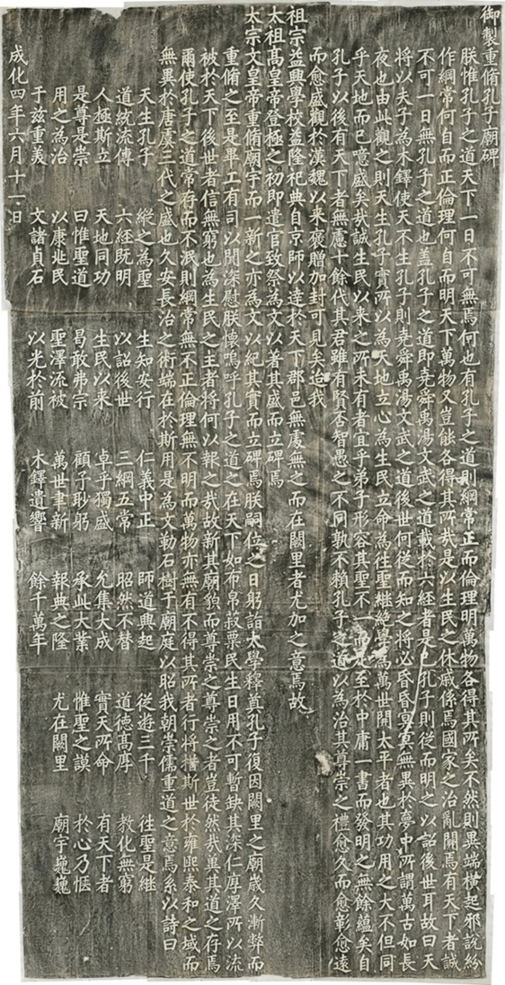 御製重脩孔子廟碑
朕惟孔子之道天下一日不可無焉何也有孔子之道則綱常正而倫理明萬物各得其所矣不然則異端橫起邪說紛
作綱常何自而正倫理何自而明天下萬物又豈能各得其所哉是以生民之休戚係焉國家之治亂關焉有天下者誠
不可一日無孔子之道也蓋孔子之道即堯舜禹湯文武之道載於六經者是已孔子則從而明之以詔後世耳故曰天
將以夫子為木鐸使天不生孔子則堯舜禹湯文武之道後世何從而知之將必昏昏冥冥無異於夢中所謂萬古如長
夜也由此觀之則天生孔子實所以為天地立心為生民立命為往聖繼絕學為萬世開太平者也其功用之大不但同
乎天地而已噫盛矣哉誠生民以來之所未有者宜乎弟子形容其聖不一而足至於中庸一書而發明之無餘蘊矣自
孔子以後有天下者無慮十餘代其君雖有賢否智愚之不同孰不賴孔子之道以為治其尊崇之禮愈久而愈彰愈遠
而愈盛觀於漢魏以來褒贈加封可見矣迨我
祖宗益興學校益隆祀典自京師以達於天下郡邑無處無之而在闕里者尤加之意焉故
太祖高皇帝登極之初即遣官致祭為文以著其盛而立碑焉
太宗文皇帝重脩廟宇而一新之亦為文以紀其實而立碑焉朕嗣位之日躬詣太學釋奠孔子復因闕里之廟歲久漸弊而
重脩之至是畢工有司以聞深慰朕懷嗚呼孔子之道之在天下如布帛菽粟民生日用不可暫缺其深仁厚澤所以流
被於天下後世者信無窮也為生民之主者將何以報之哉故新其廟貌而尊崇之尊崇之者豈徒然哉冀其道之存焉
爾使孔子之道常存而不泯則綱常無不正倫理無不明而萬物亦無有不得其所者行將措斯世於雍熙泰和之域而
無異於唐虞三代之盛也久安長治之術端在於斯用是為文勒石樹于廟庭以昭我朝崇儒重道之意焉系以詩曰
天生孔子 縱之為聖 生知安行 仁義中正 師道興起 從游三千 往聖是繼
道統流傳 六經既明 以詔後世 三綱五常 昭然不替 道德高厚 教化無窮
人極斯立 天地同功 生民以來 卓乎獨盛 允集大成 實天所命 有天下者
是尊是崇 曰惟聖道 曷敢弗宗 顧予眇躬 承此大業 惟聖之謨 於心乃愜
用之為治 以康兆民 聖澤流被 萬世聿新 報典之隆 尤在闕里 廟宇巍巍
于茲重美 文諸貞石 以光於前 木鐸遺響 餘千萬年
成化四年六月十二日